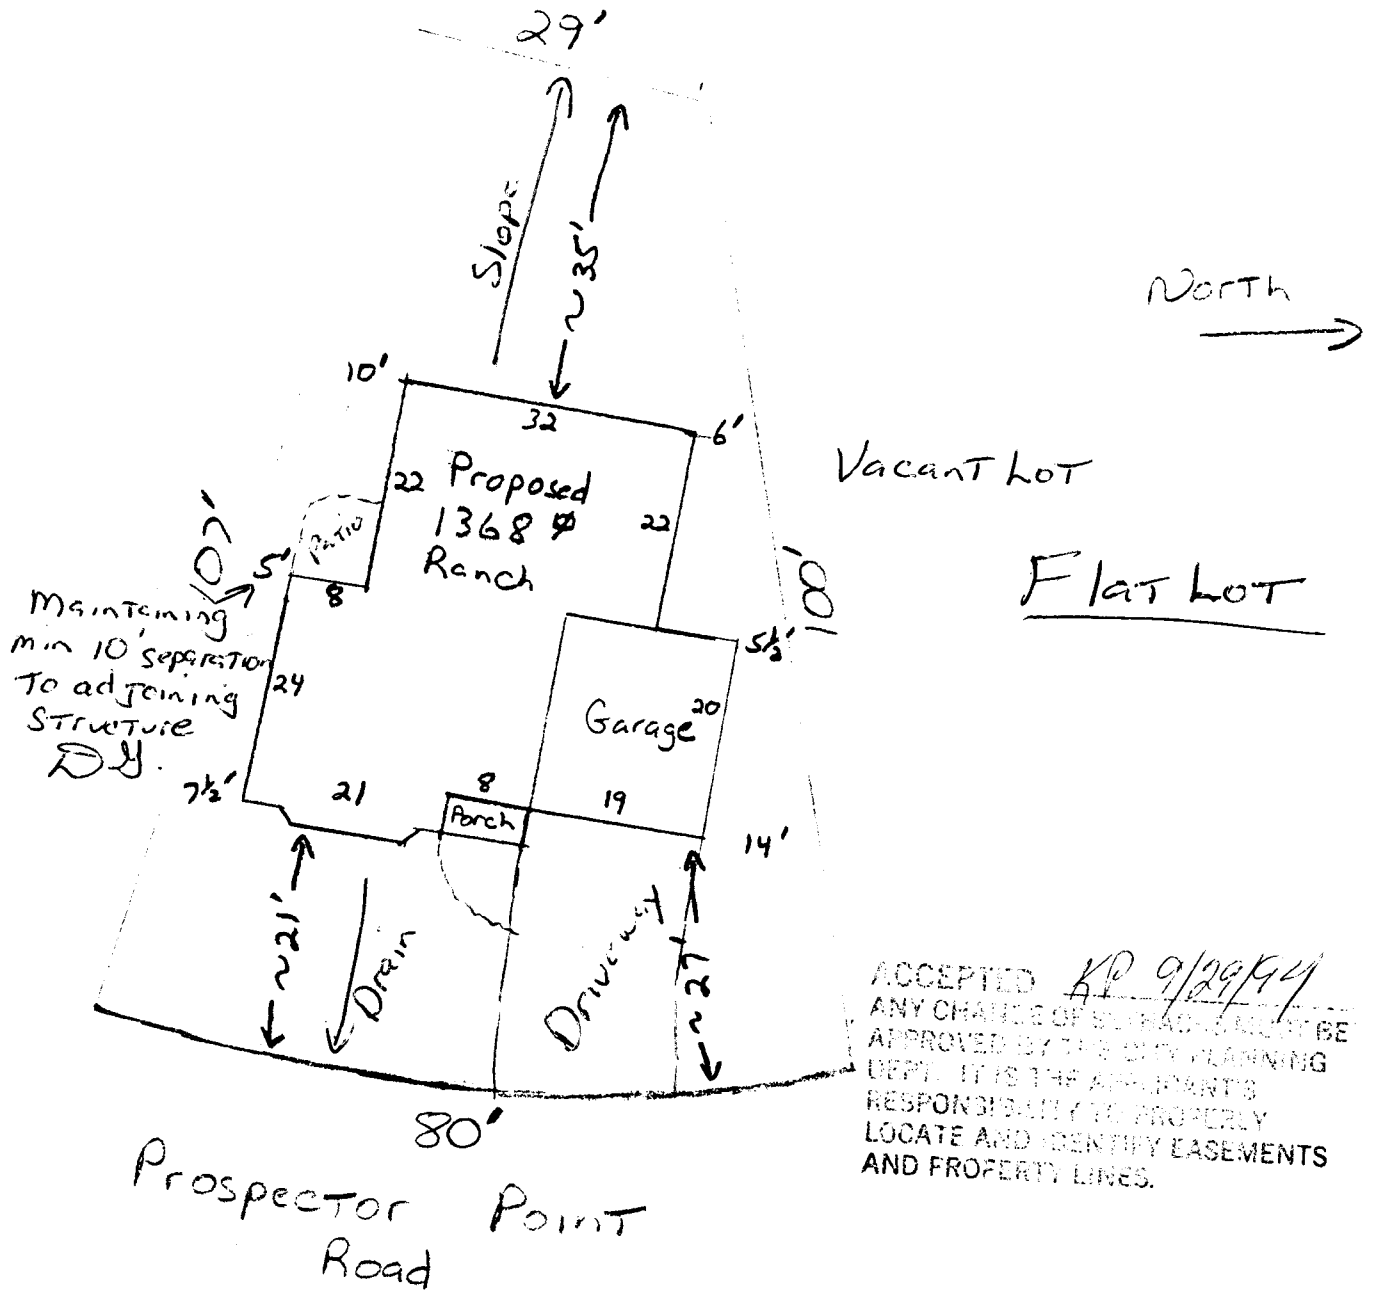 29'
Slope
~35'
North
10'
32
6'
22
Proposed
1368 ⌀
Ranch
22
Vacant Lot
Patio
107'
5'
8
100'
Flat Lot
Maintaining
min 10' separation
To adjoining
structure
DG.
24
5½'
Garage
20
7½'
21
8
19
Porch
14'
~21'
Drain
Driveway
~27'
80'
Prospector Point
Road
ACCEPTED KP 9/29/94
ANY CHANGE OF SETBACKS MUST BE
APPROVED BY THE CITY PLANNING
DEPT. IT IS THE APPLICANT'S
RESPONSIBILITY TO PROPERLY
LOCATE AND IDENTIFY EASEMENTS
AND PROPERTY LINES.